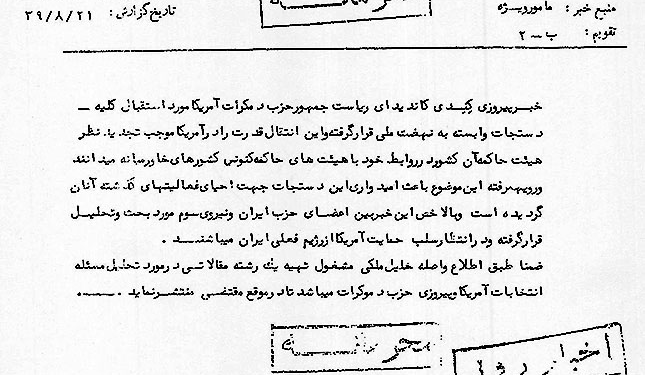 محرمانه
منبع خبر : مامورویژه
تاریخ گزارش : ۳۹/۸/۲۱
تقویم : ب ــ ۲
خبرپیروزی کندی کاندیدای ریاست جمهورحزب دمکرات آمریکامورد استقبال کلیه ــ
دستجات وابسته به نهضت ملی قرارگرفته واین انتقال قدرت رادرآمریکاموجب تجدید نظر
هیئت حاکمه آن کشوردرروابط خود با هیئت های حاکمه کنونی کشورهای خاورمیانه میدانند
ورویهمرفته این موضوع باعث امیدواری این دستجات جهت احیای فعالیتهای گذشته آنان
گردیده است وبالاخص این خبربین اعضای حزب ایران ونیروی سوم مورد بحث وتحلیل
قرارگرفته ودرانتظارسلب حمایت آمریکاازرژیم فعلی ایران میباشند .
ضمنا طبق اطلاع واصله خلیل ملکی مشغول تهیه یك رشته مقالاتی درمورد تحلیل مسئله
انتخابات آمریکاوپیروزی حزب دموکرات میباشد تادرموقع مقتضی منتشرنماید .
محرمانه